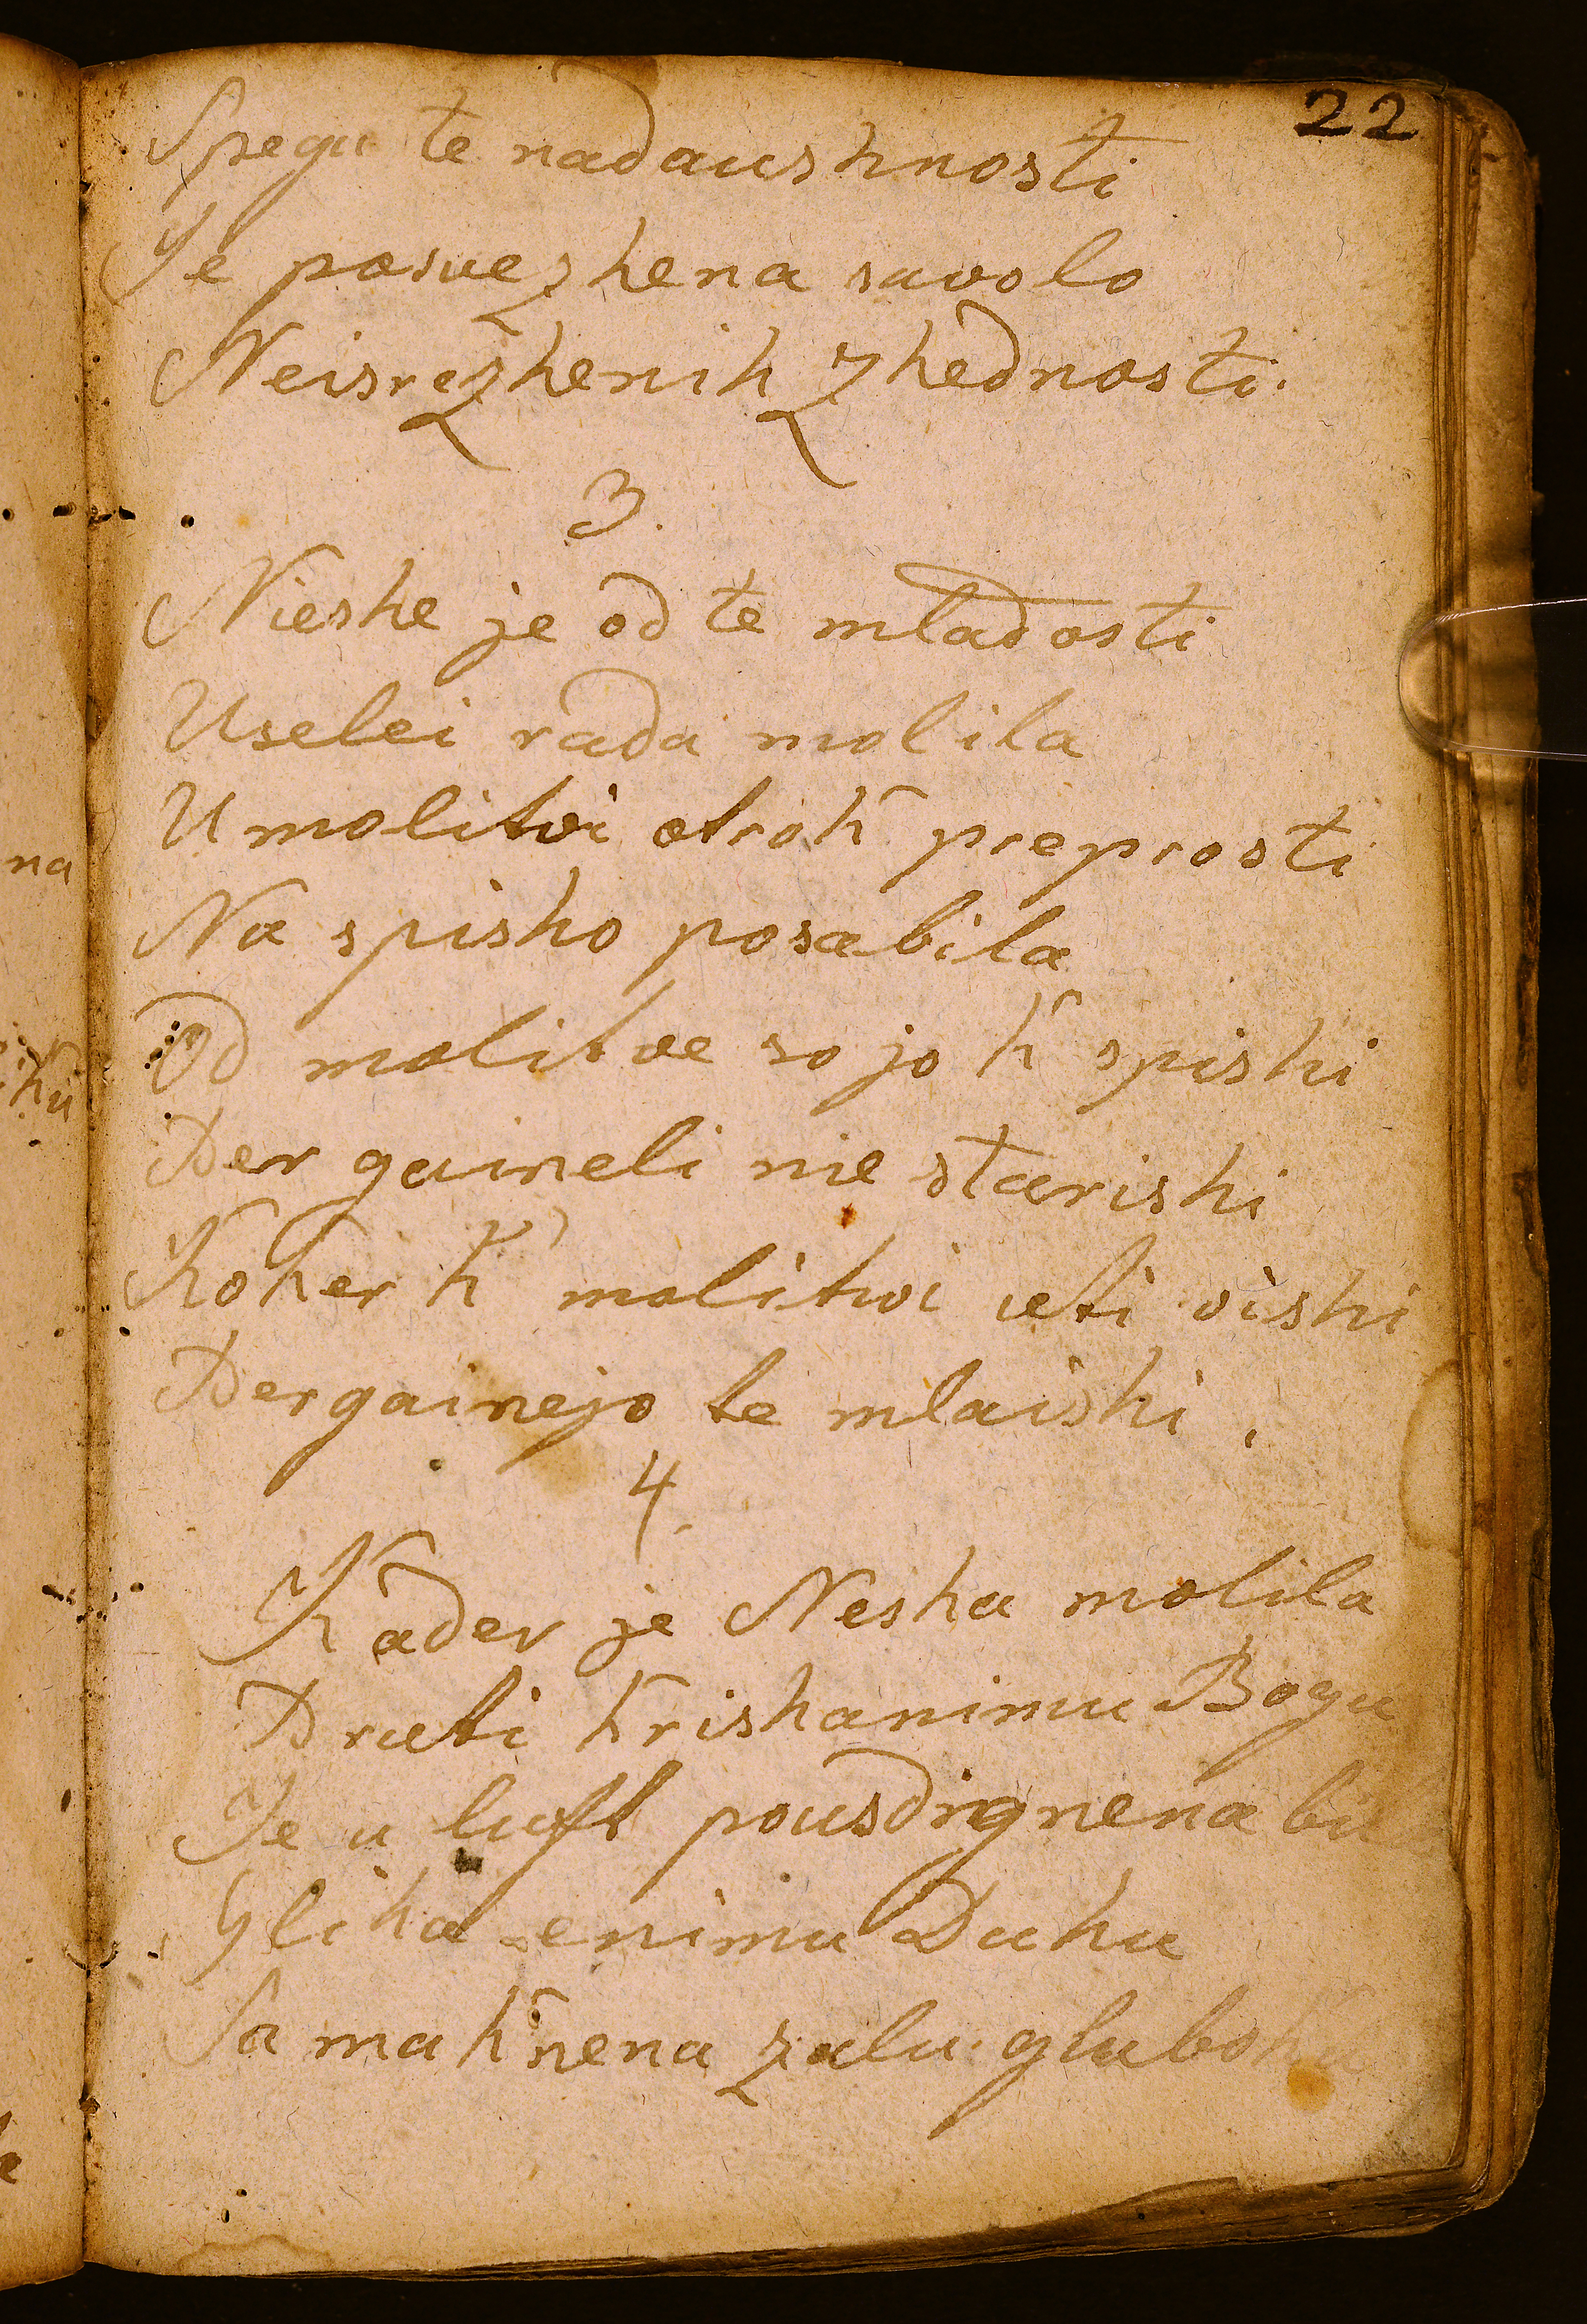 22
Spegu te nadaushnosti
Je posuezhena savolo
Neisrezhenih Zhednosti.
3.
Nieshe je od te mladosti
Uselei rada molila
U molitvi otrok preprosti
Na spisho posabila
Od molitve so jo k spishi
Per gaineli nie starishi
Koker k' molitvi uti vishi
Pergainejo te mlaishi,
4.
Kader je Nesha molila
Pruti krishanimu Bogu
Je u luft pousdignena bil
Gliha enimu Duhu
Sa maknena zalu gluboku
na